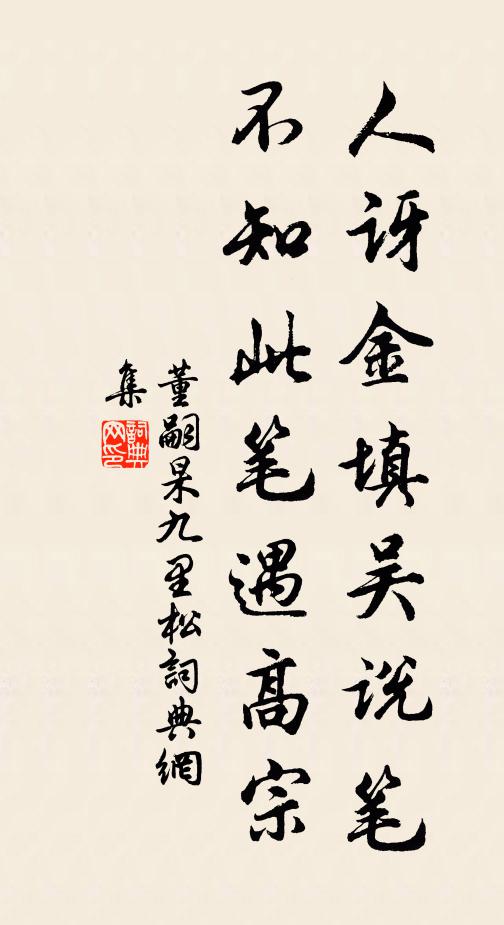 人讶金填吴说笔
不知此笔遇高宗
董嗣杲九里松詞典網
集
詞典
网印